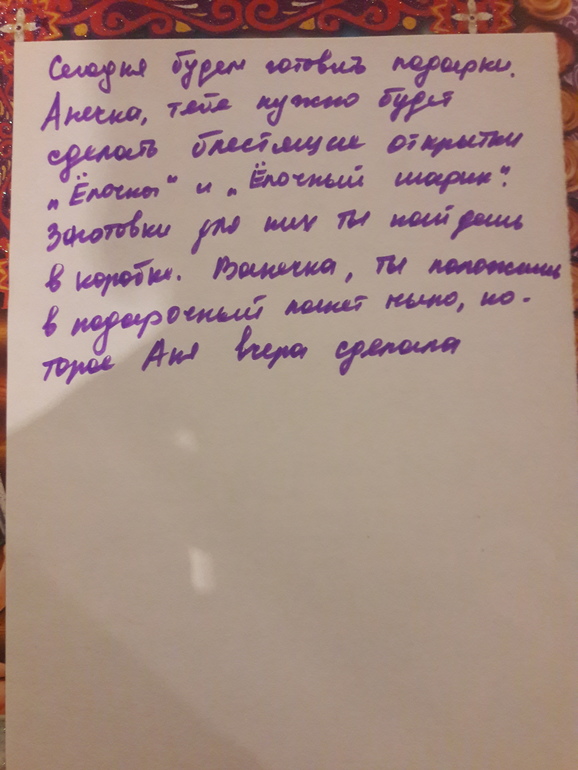 Сегодня будем готовить подарки.
Анечка, тебе нужно будет
сделать блестящие открытки
„Ёлочки" и „Ёлочный шарик".
Заготовки для них ты найдёшь
в коробке. Ванечка, ты положишь
в подарочный пакет мыло, ко-
торое Аня вчера сделала